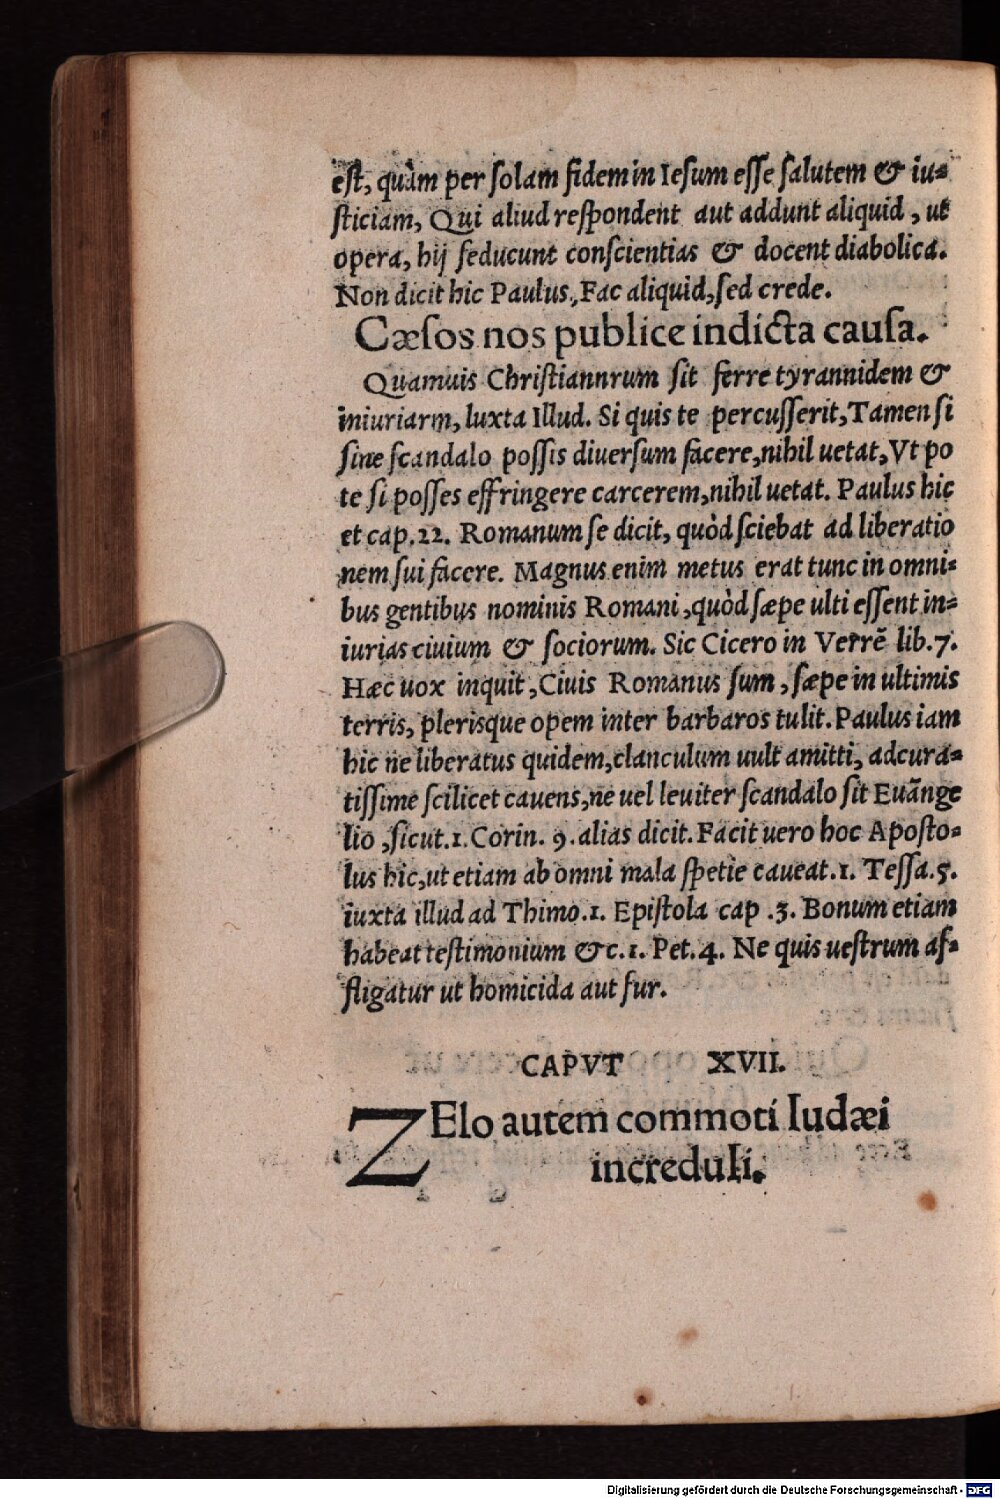 est, quàm per solam fidem in Iesum esse salutem & iu⸗
sticiam, Qui aliud respondent aut addunt aliquid, ut
opera, hij seducunt conscientias & docent diabolica.
Non dicit hic Paulus, Fac aliquid, sed crede.
Cæsos nos publice indicta causa.
Quamuis Christiannrum sit ferre tyrannidem &
iniuriarm, Iuxta Illud. Si quis te percusserit, Tamen si
sine scandalo possis diuersum facere, nihil uetat, Vt po
te si posses effringere carcerem, nihil uetat. Paulus hic
et cap. 22. Romanum se dicit, quòd sciebat ad liberatio
nem sui facere. Magnus enim metus erat tunc in omni⸗
bus gentibus nominis Romani, quòd sæpe ulti essent in⸗
iurias ciuium & sociorum. Sic Cicero in Verrē lib. 7.
Hæc uox inquit, Ciuis Romanus sum, sæpe in ultimis
terris, plerisque opem inter barbaros tulit. Paulus iam
hic ne liberatus quidem, clanculum uult amitti, adcura⸗
tissime scilicet cauens, ne uel leuiter scandalo sit Euānge
lio, sicut. 1. Corin. 9. alias dicit. Facit uero hoc Aposto⸗
lus hic, ut etiam ab omni mala spetie caueat. 1. Tessa. 5.
iuxta illud ad Thimo. 1. Epistola cap. 3. Bonum etiam
habeat testimonium &c. 1. Pet. 4. Ne quis uestrum af⸗
fligatur ut homicida aut fur.
CAPVT XVII.
ZElo autem commoti Iudæi
increduli.
Digitalisierung gefördert durch die Deutsche Forschungsgemeinschaft - DFG